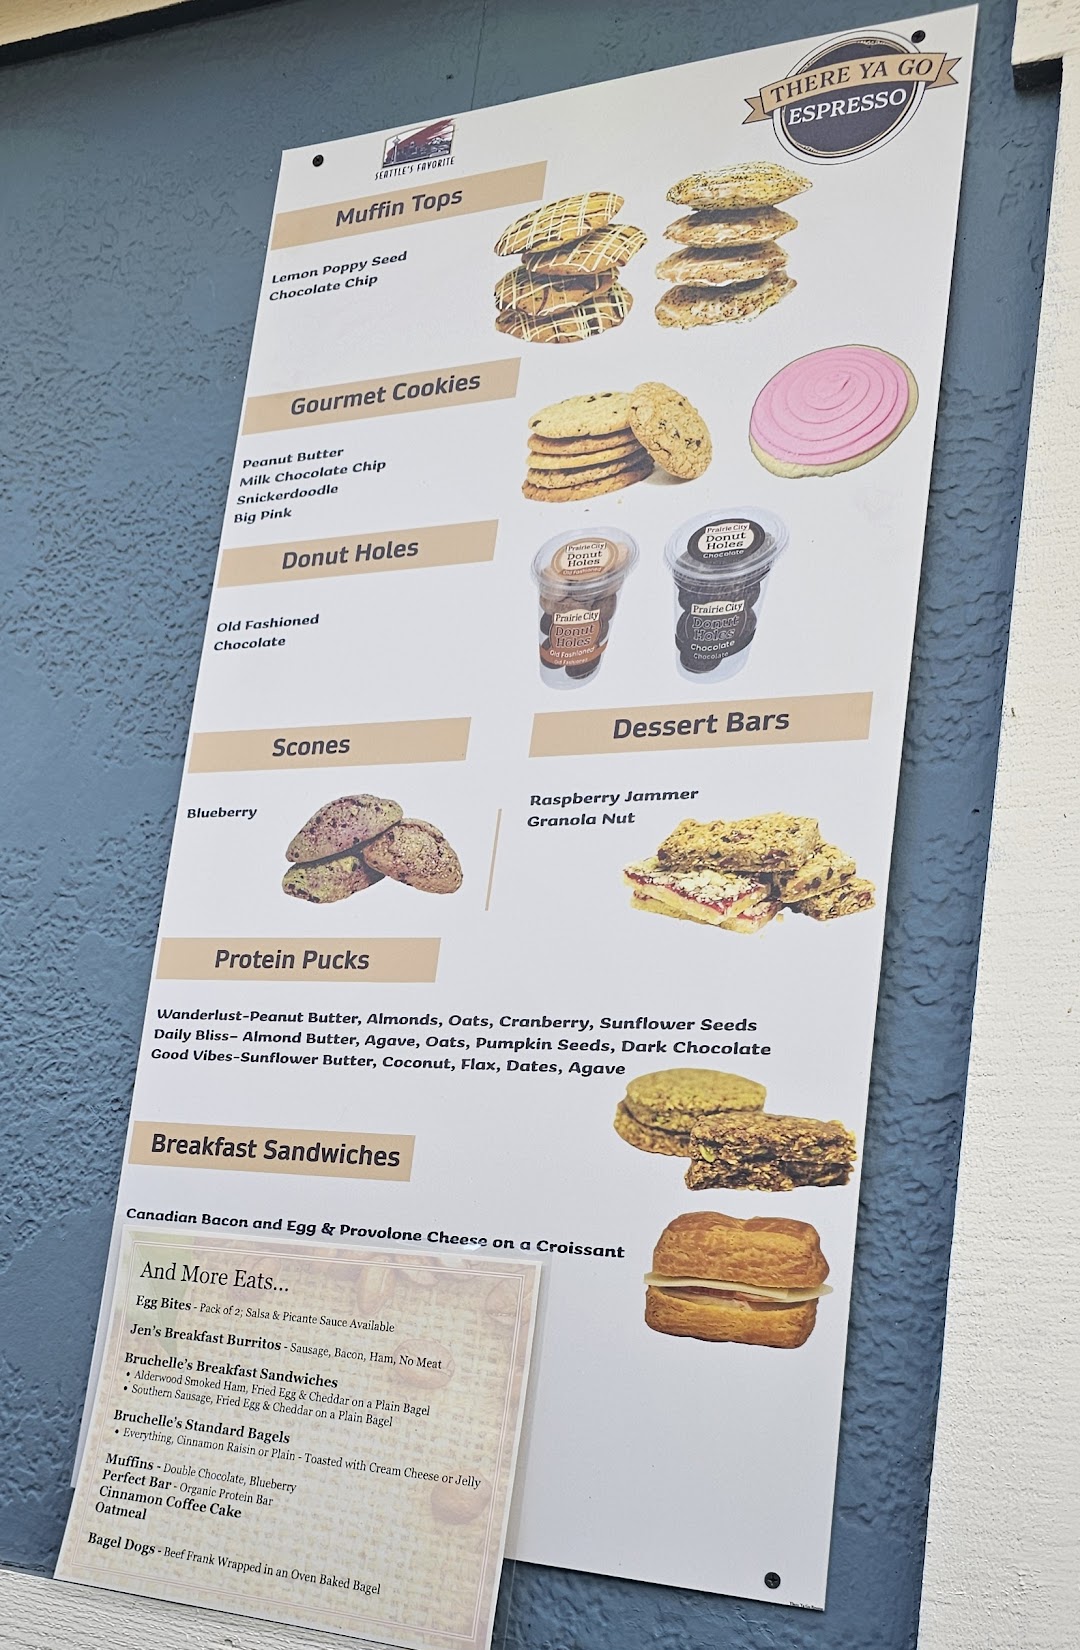 THERE YA GO
ESPRESSO
SEATTLE'S FAVORITE
Muffin Tops
Lemon Poppy Seed
Chocolate Chip
Gourmet Cookies
Peanut Butter
Milk Chocolate Chip
Snickerdoodle
Big Pink
Donut Holes
Old Fashioned
Chocolate
Prairie City
Donut
Holes
Old Fashioned
Prairie City
Donut
Holes
Old Fashioned
Old Fashioned
Prairie City
Donut
Holes
Chocolate
Prairie City
Donut
Holes
Chocolate
Chocolate
Scones
Blueberry
Dessert Bars
Raspberry Jammer
Granola Nut
Protein Pucks
Wanderlust-Peanut Butter, Almonds, Oats, Cranberry, Sunflower Seeds
Daily Bliss- Almond Butter, Agave, Oats, Pumpkin Seeds, Dark Chocolate
Good Vibes-Sunflower Butter, Coconut, Flax, Dates, Agave
Breakfast Sandwiches
Canadian Bacon and Egg & Provolone Cheese on a Croissant
And More Eats...
Egg Bites - Pack of 2; Salsa & Picante Sauce Available
Jen's Breakfast Burritos - Sausage, Bacon, Ham, No Meat
Bruchelle's Breakfast Sandwiches
• Alderwood Smoked Ham, Fried Egg & Cheddar on a Plain Bagel
• Southern Sausage, Fried Egg & Cheddar on a Plain Bagel
Bruchelle's Standard Bagels
• Everything, Cinnamon Raisin or Plain - Toasted with Cream Cheese or Jelly
Muffins - Double Chocolate, Blueberry
Perfect Bar - Organic Protein Bar
Cinnamon Coffee Cake
Oatmeal
Bagel Dogs - Beef Frank Wrapped in an Oven Baked Bagel